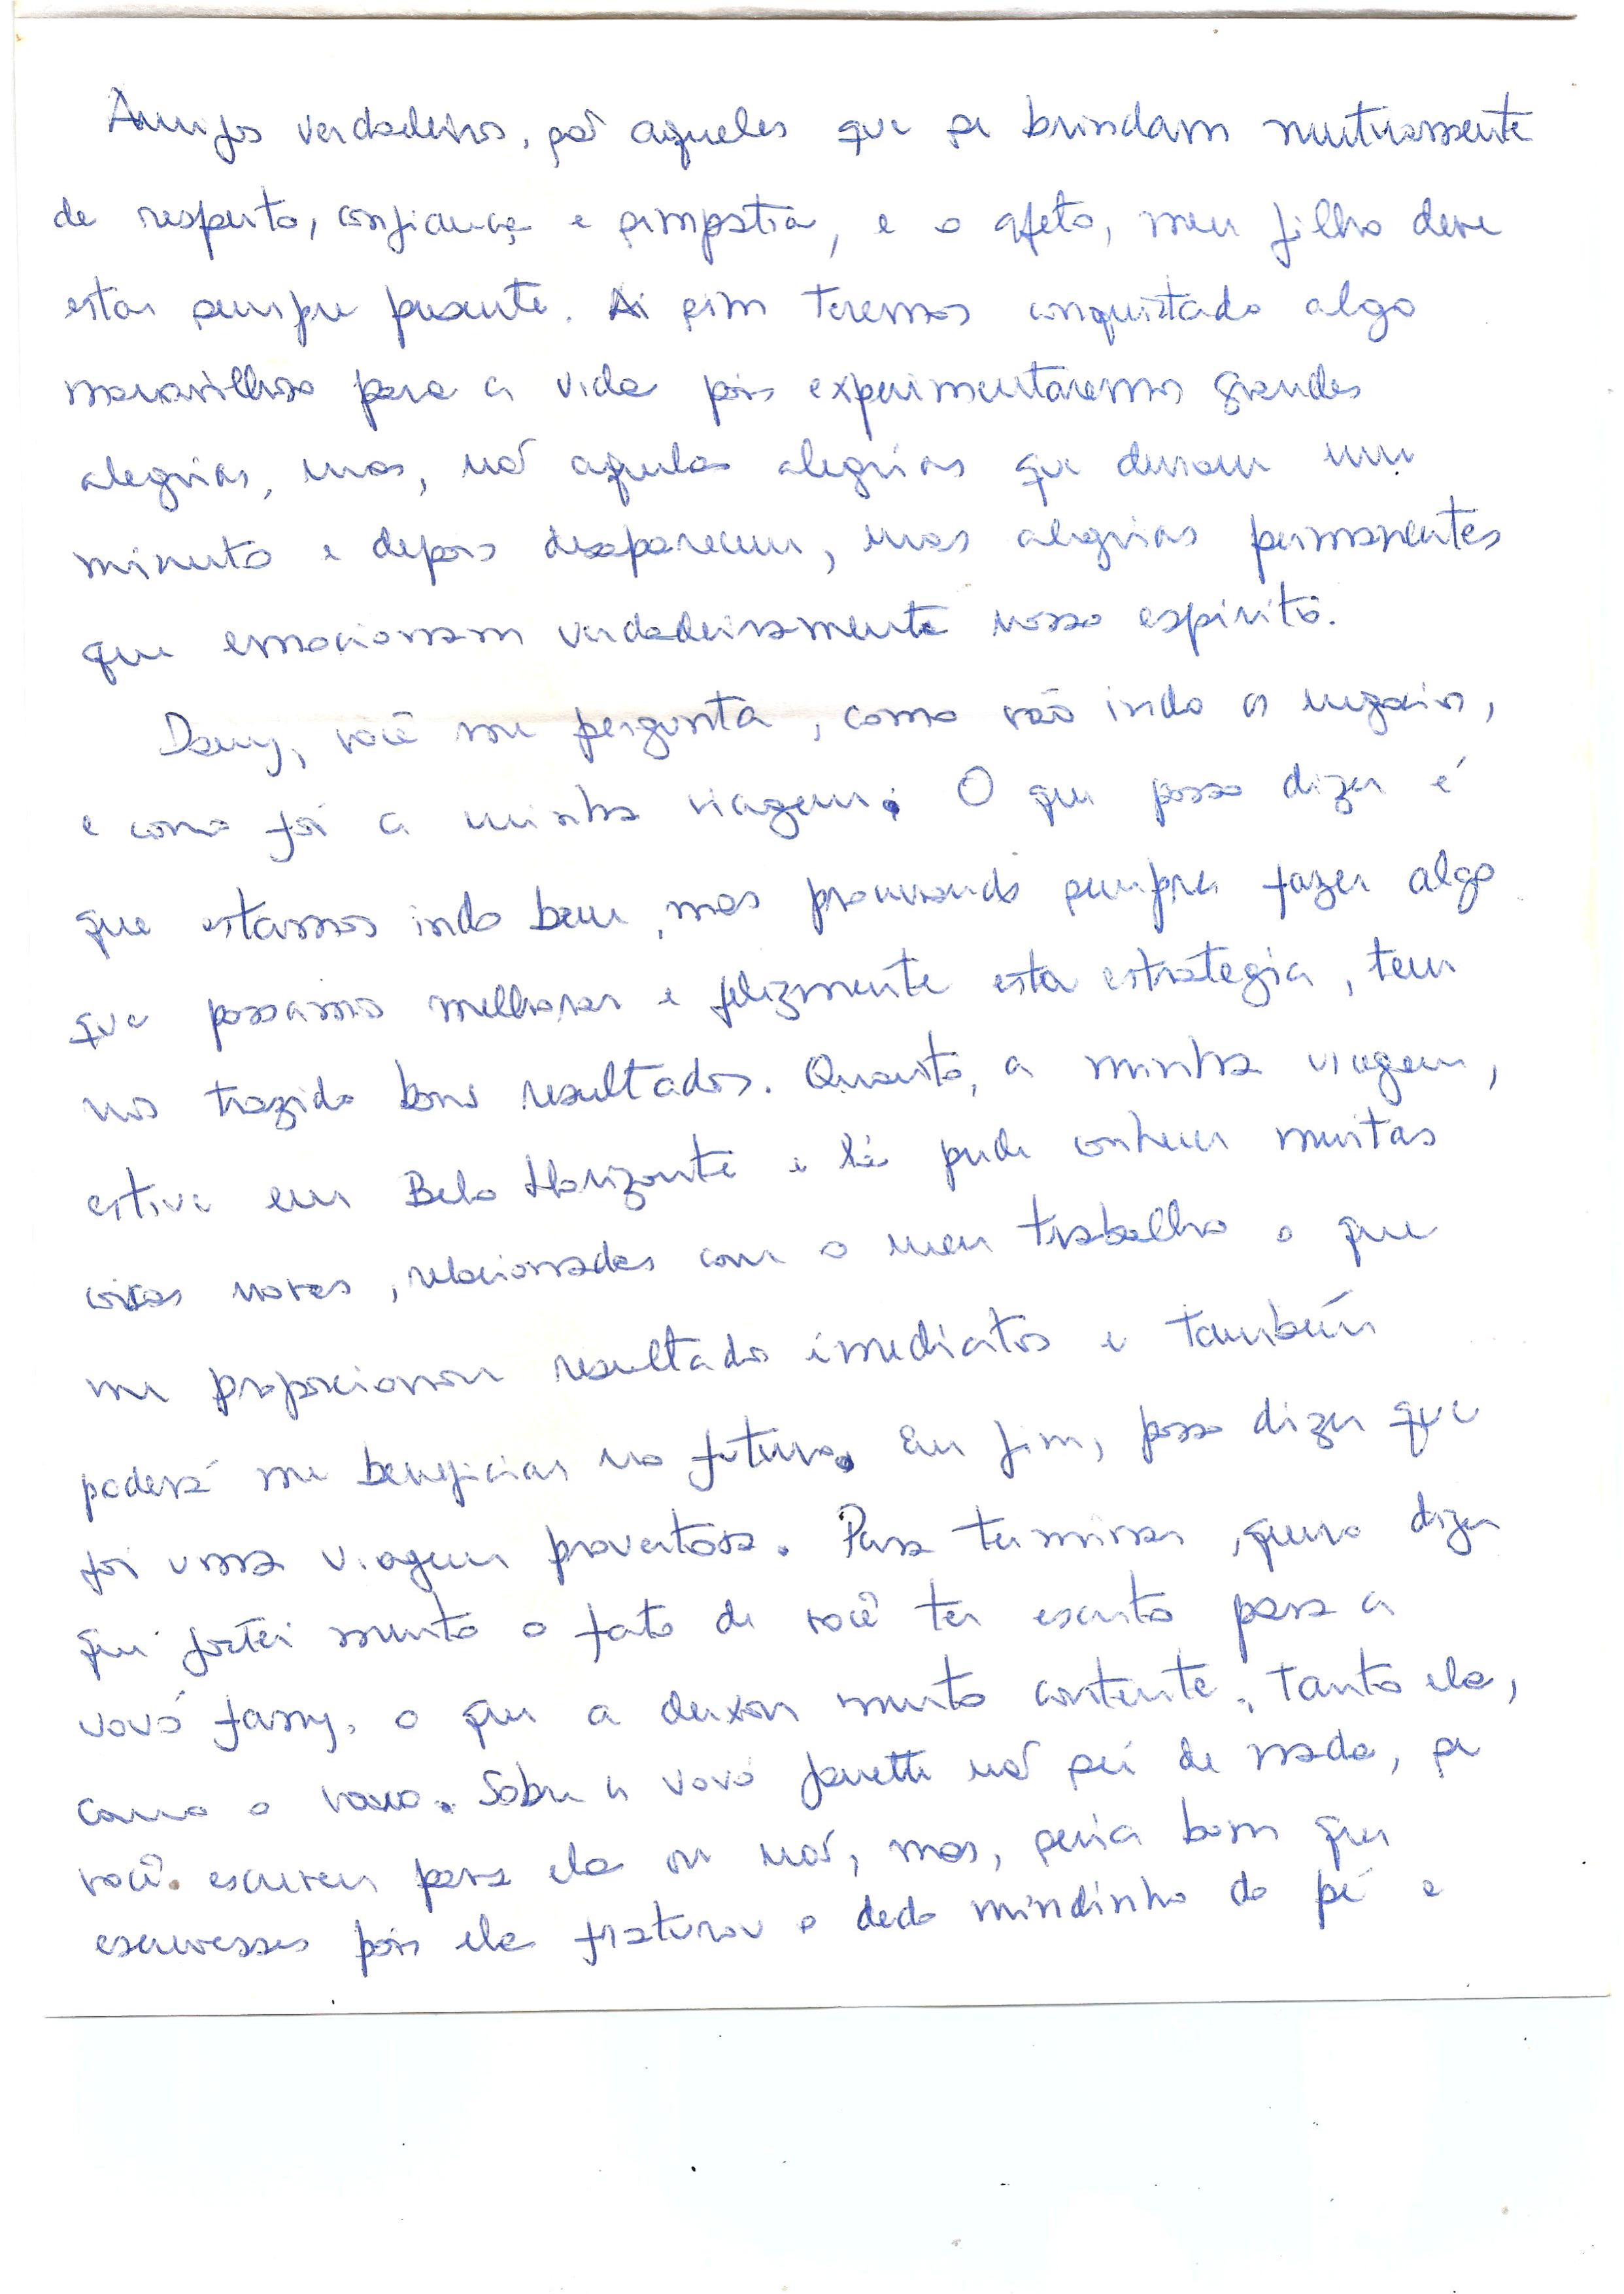 Amigos verdadeiros, são aqueles que se brindam mutuamente
de respeito, confiança e simpatia, e o afeto, meu filho deve
estar sempre presente. Ai sim teremos conquistado algo
maravilhoso para a vida pois experimentaremos grandes
alegrias, mas, não aquelas alegrias que duram um
minuto e depois desaparecem, mas alegrias permanentes
que emocionam verdadeiramente nosso espirito.
Dany, você me pergunta, como vão indo os negocios,
e como foi a minha viagem. O que posso dizer é
que estamos indo bem, mas procurando sempre fazer algo
que possamos melhorar e felizmente esta estrategia, tem
nos trazido bons resultados. Quanto, a minha viagem,
estive em Belo Horizonte e lá pude conhecer muitas
coisas novas, relacionadas com o meu trabalho o que
me proporcionou resultados imediatos e também
poderá me beneficiar no futuro. Em fim, posso dizer que
foi uma viagem proveitosa. Para terminar, quero dizer
que gostei muito o fato de você ter escrito para a
vovó Fanny, o que a deixou muito contente, tanto ela,
como o vovo. Sobre a vovó Janette não sei de nada, se
você escreveu para ela ou não, mas, seria bom que
escrevesses pois ela fraturou o dedo mindinho do pé e